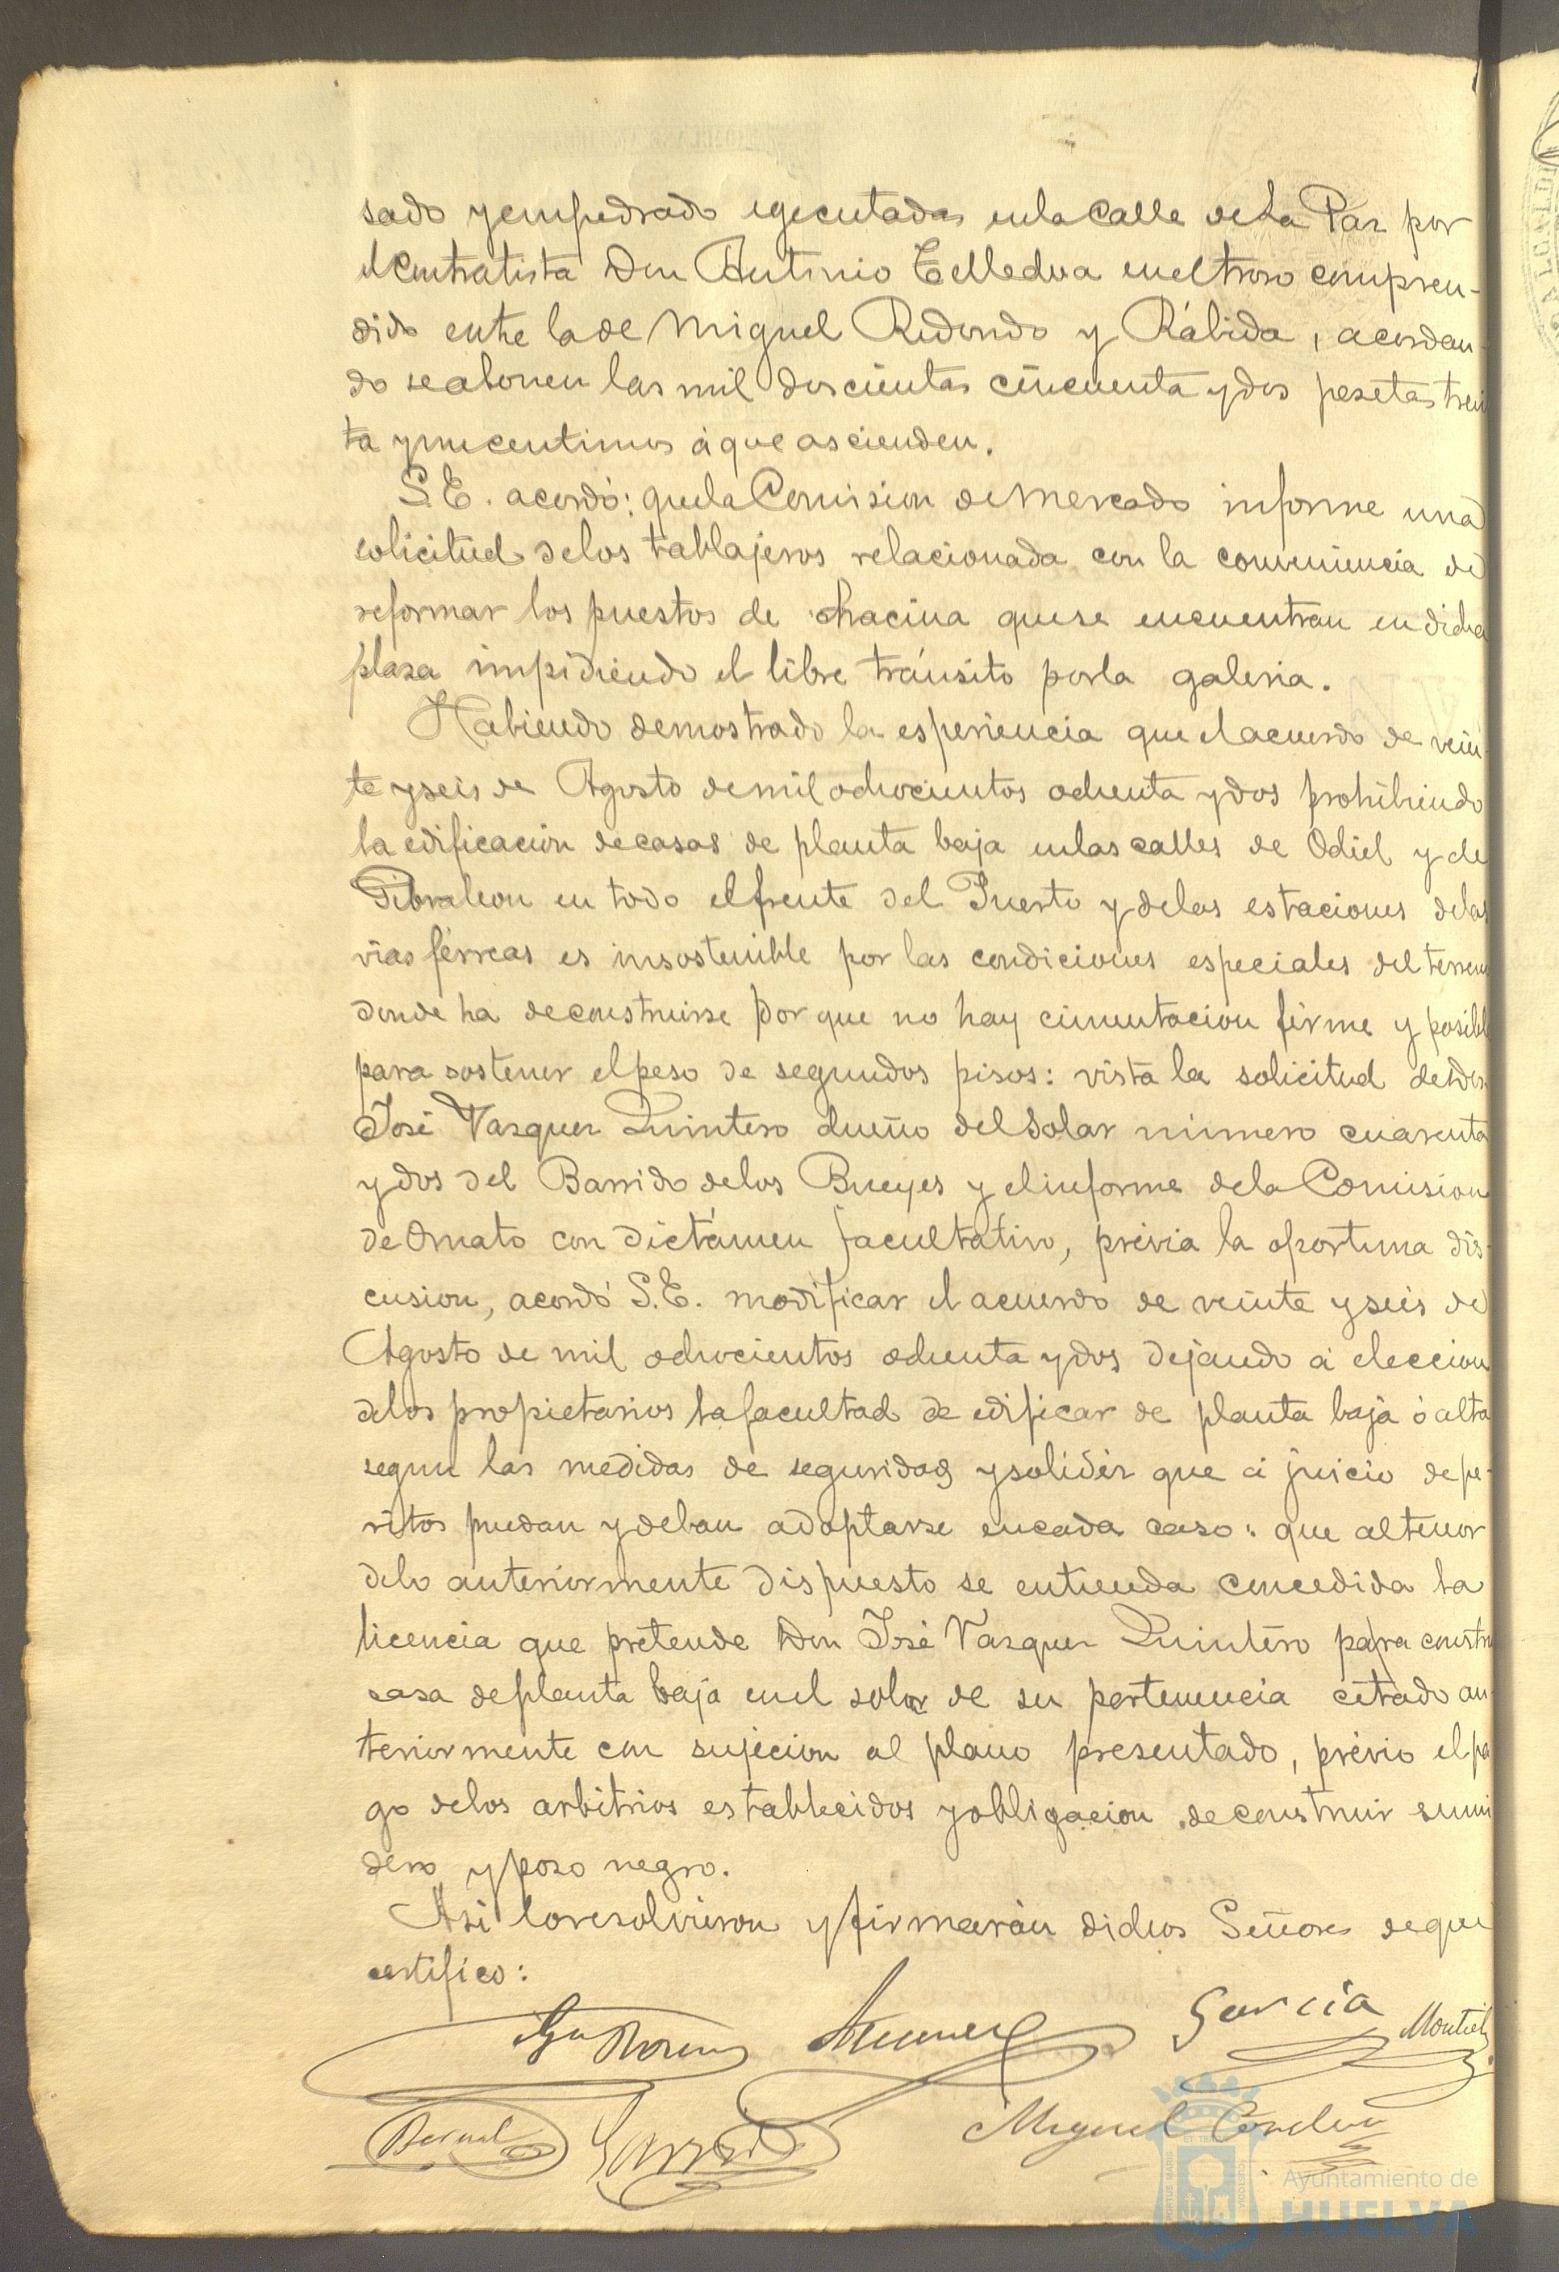 sado y empedrado egecutadas en la Calle de La Paz por
el Contratista Don Antonio Telledva en el troso compren-
dido entre la de Miguel Redondo y Rábida, acordan-
do se abonen las mil doscientas cincuenta y dos pesetas trein
ta y un centimos á que ascienden.
S.E. acordó: que la Comision de Mercado informe una
solicitud de los tablajeros relacionada con la conveniencia de
reformar los puestos de chacina que se encuentran en dicha
plaza impidiendo el libre tránsito por la galeria.
Habiendo demostrado la esperiencia que el acuerdo de vein-
te y seis de Agosto de mil ochocientos ochenta y dos prohibiendo
la edificación de casas de planta baja en las calles de Odiel y de
Gibraleon en todo el frente del Puerto y de las estaciones de las
vias férreas es insostenible por las condiciones especiales del terreno
donde ha de construirse por que no hay cimentacion firme y posibl
para sostener el peso de segundos pisos: vista la solicitud de Don
José Vazquez Quintero dueño del Solar número cuarenta
y dos del Barrido de los Bueyes y el informe de la Comision
de Ornato con dictámen facultativo, prévia la oportuna dis-
cusion, acordó S.E. modificar el acuerdo de veinte y seis de
Agosto de mil ochocientos ochenta y dos dejando á eleccion
de los propietarios la facultad de edificar de planta baja ó alta
segun las medidas de seguridad y solidéz que á juicio de pe-
ritos puedan y deban adoptarse en cada caso: que al tenor
de lo anteriormente dispuesto se entienda concedida la
licencia que pretende Don José Vazquez Quintero para constru
casa de planta baja en el solar de su pertenencia citado an
teriormente con sujecion al plano presentado, prévio el pa
go de los arbitrios establecidos y obligacion de construir sumi
dero y pozo negro.
Asi lo resolvieron y firmarán dichos Señores de que
certifico:
García Montiel
Bernal Garrido Miguel
Ayuntamiento de
HUELVA